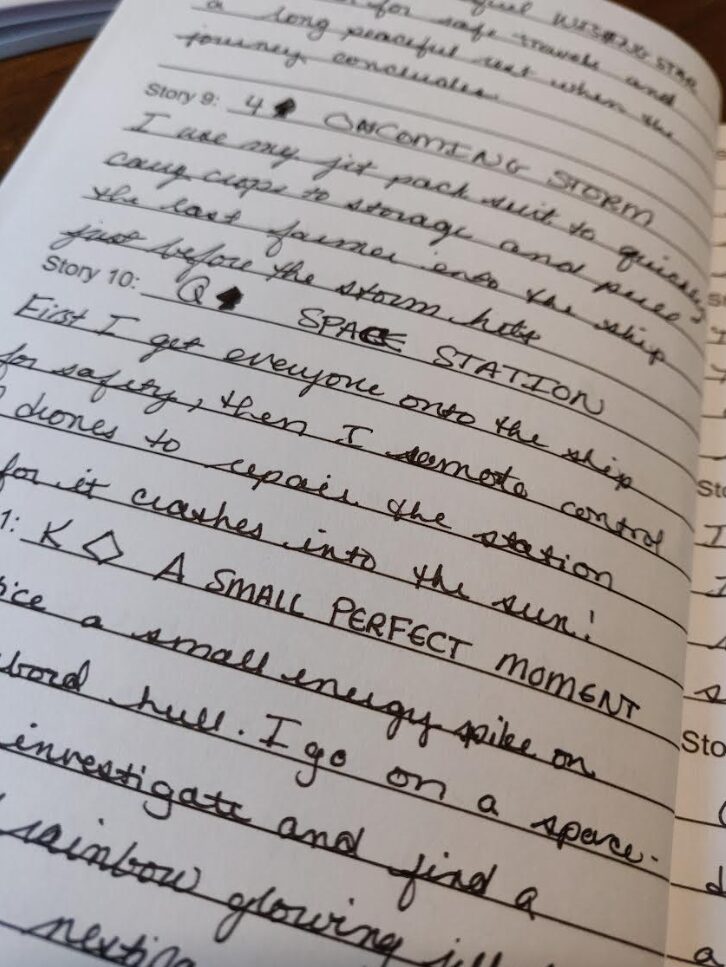 for safe travels and
a long peaceful rest when the
journey concludes.
Story 9: 4♦ ONCOMING STORM
I use my jet pack suit to quickly
carry crops to storage and
the last farmer onto the ship
just before the storm hits
Story 10: Q♦ SPACE STATION
First I get everyone onto the ship
for safety, then I remote control
drones to repair the station
for it crashes into the sun!
1: K◇ A SMALL PERFECT MOMENT
a small energy spike on
hull. I go on a space-
investigate and find a
rainbow glowing
Sto
Sto